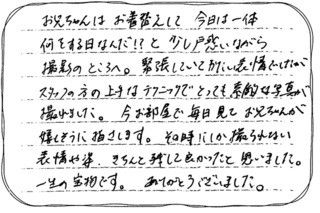 お兄ちゃんは お着替えして 今日は一体
何をする日なんだ!?と 少し戸惑いながら
撮影のところへ。緊張していて かたい表情でしたが
スタッフの方の上手なテクニックでとっても素敵な写真が
撮れました。 今お部屋で毎日見て お兄ちゃんが
嬉しそうに指さします。その時にしか撮られない
表情や姿 きちんと残して良かったと思いました。
一生の宝物です。 ありがとうございました。